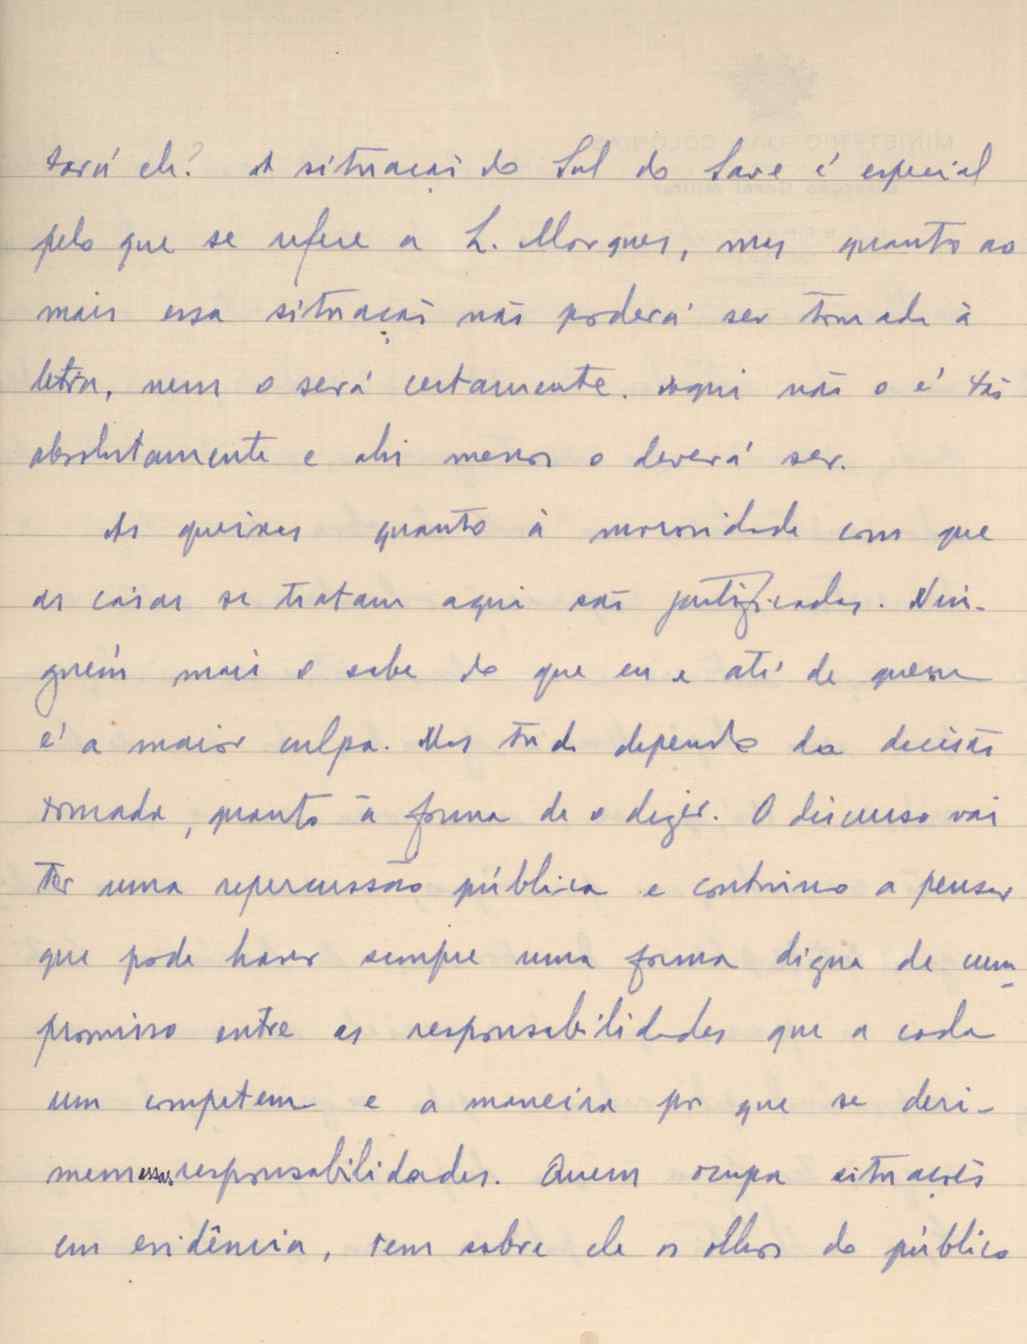 tará ele? A situação do Sul do Save é especial
pelo que se refere a L. Marques, mas quanto ao
mais essa situação não poderá ser tomada à
letra, nem o será certamente. Aqui não o é tão
absolutamente e ahi menos o deverá ser.
As queixas quanto à morosidade com que
as coisas se tratam aqui são justificadas. Nin-
guém mais o sabe do que eu e até de quem
é a maior culpa. Mas tudo depende da decisão
tomada, quanto à forma de o dizer. O discurso vai
ter uma repercussão pública e continuo a pensar
que pode haver sempre uma forma digna de com-
promisso entre as responsabilidades que a cada
um competem e a maneira por que se deri-
mem essas responsabilidades. Quem ocupa situações
em evidência, tem sobre ele os olhos do público